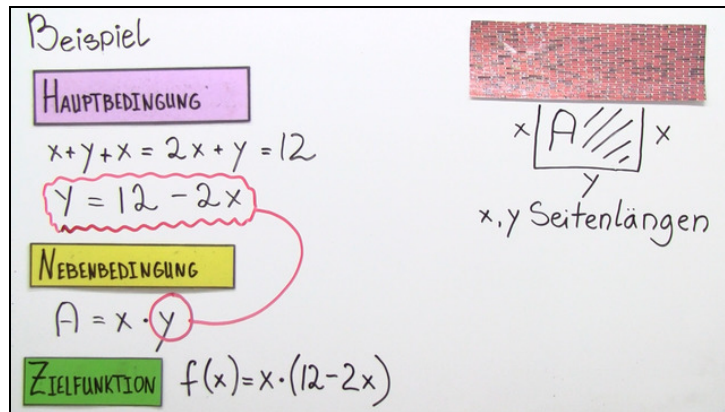 Beispiel
HAUPTBEDINGUNG
x+y+x = 2x+y = 12
y = 12 - 2x
NEBENBEDINGUNG
A = x · y
ZIELFUNKTION f(x)=x·(12-2x)
x A x
y
x,y Seitenlängen